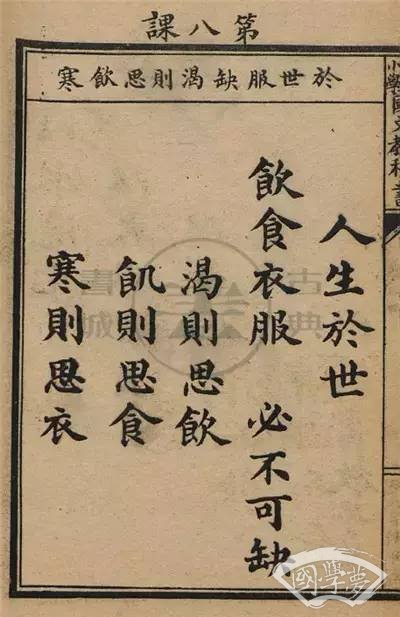 第八課
於世服缺渴則思飲寒
小學國文教科書
人生於世
飲食衣服 必不可缺
渴則思飲
飢則思食
寒則思衣
古典書城
國學夢